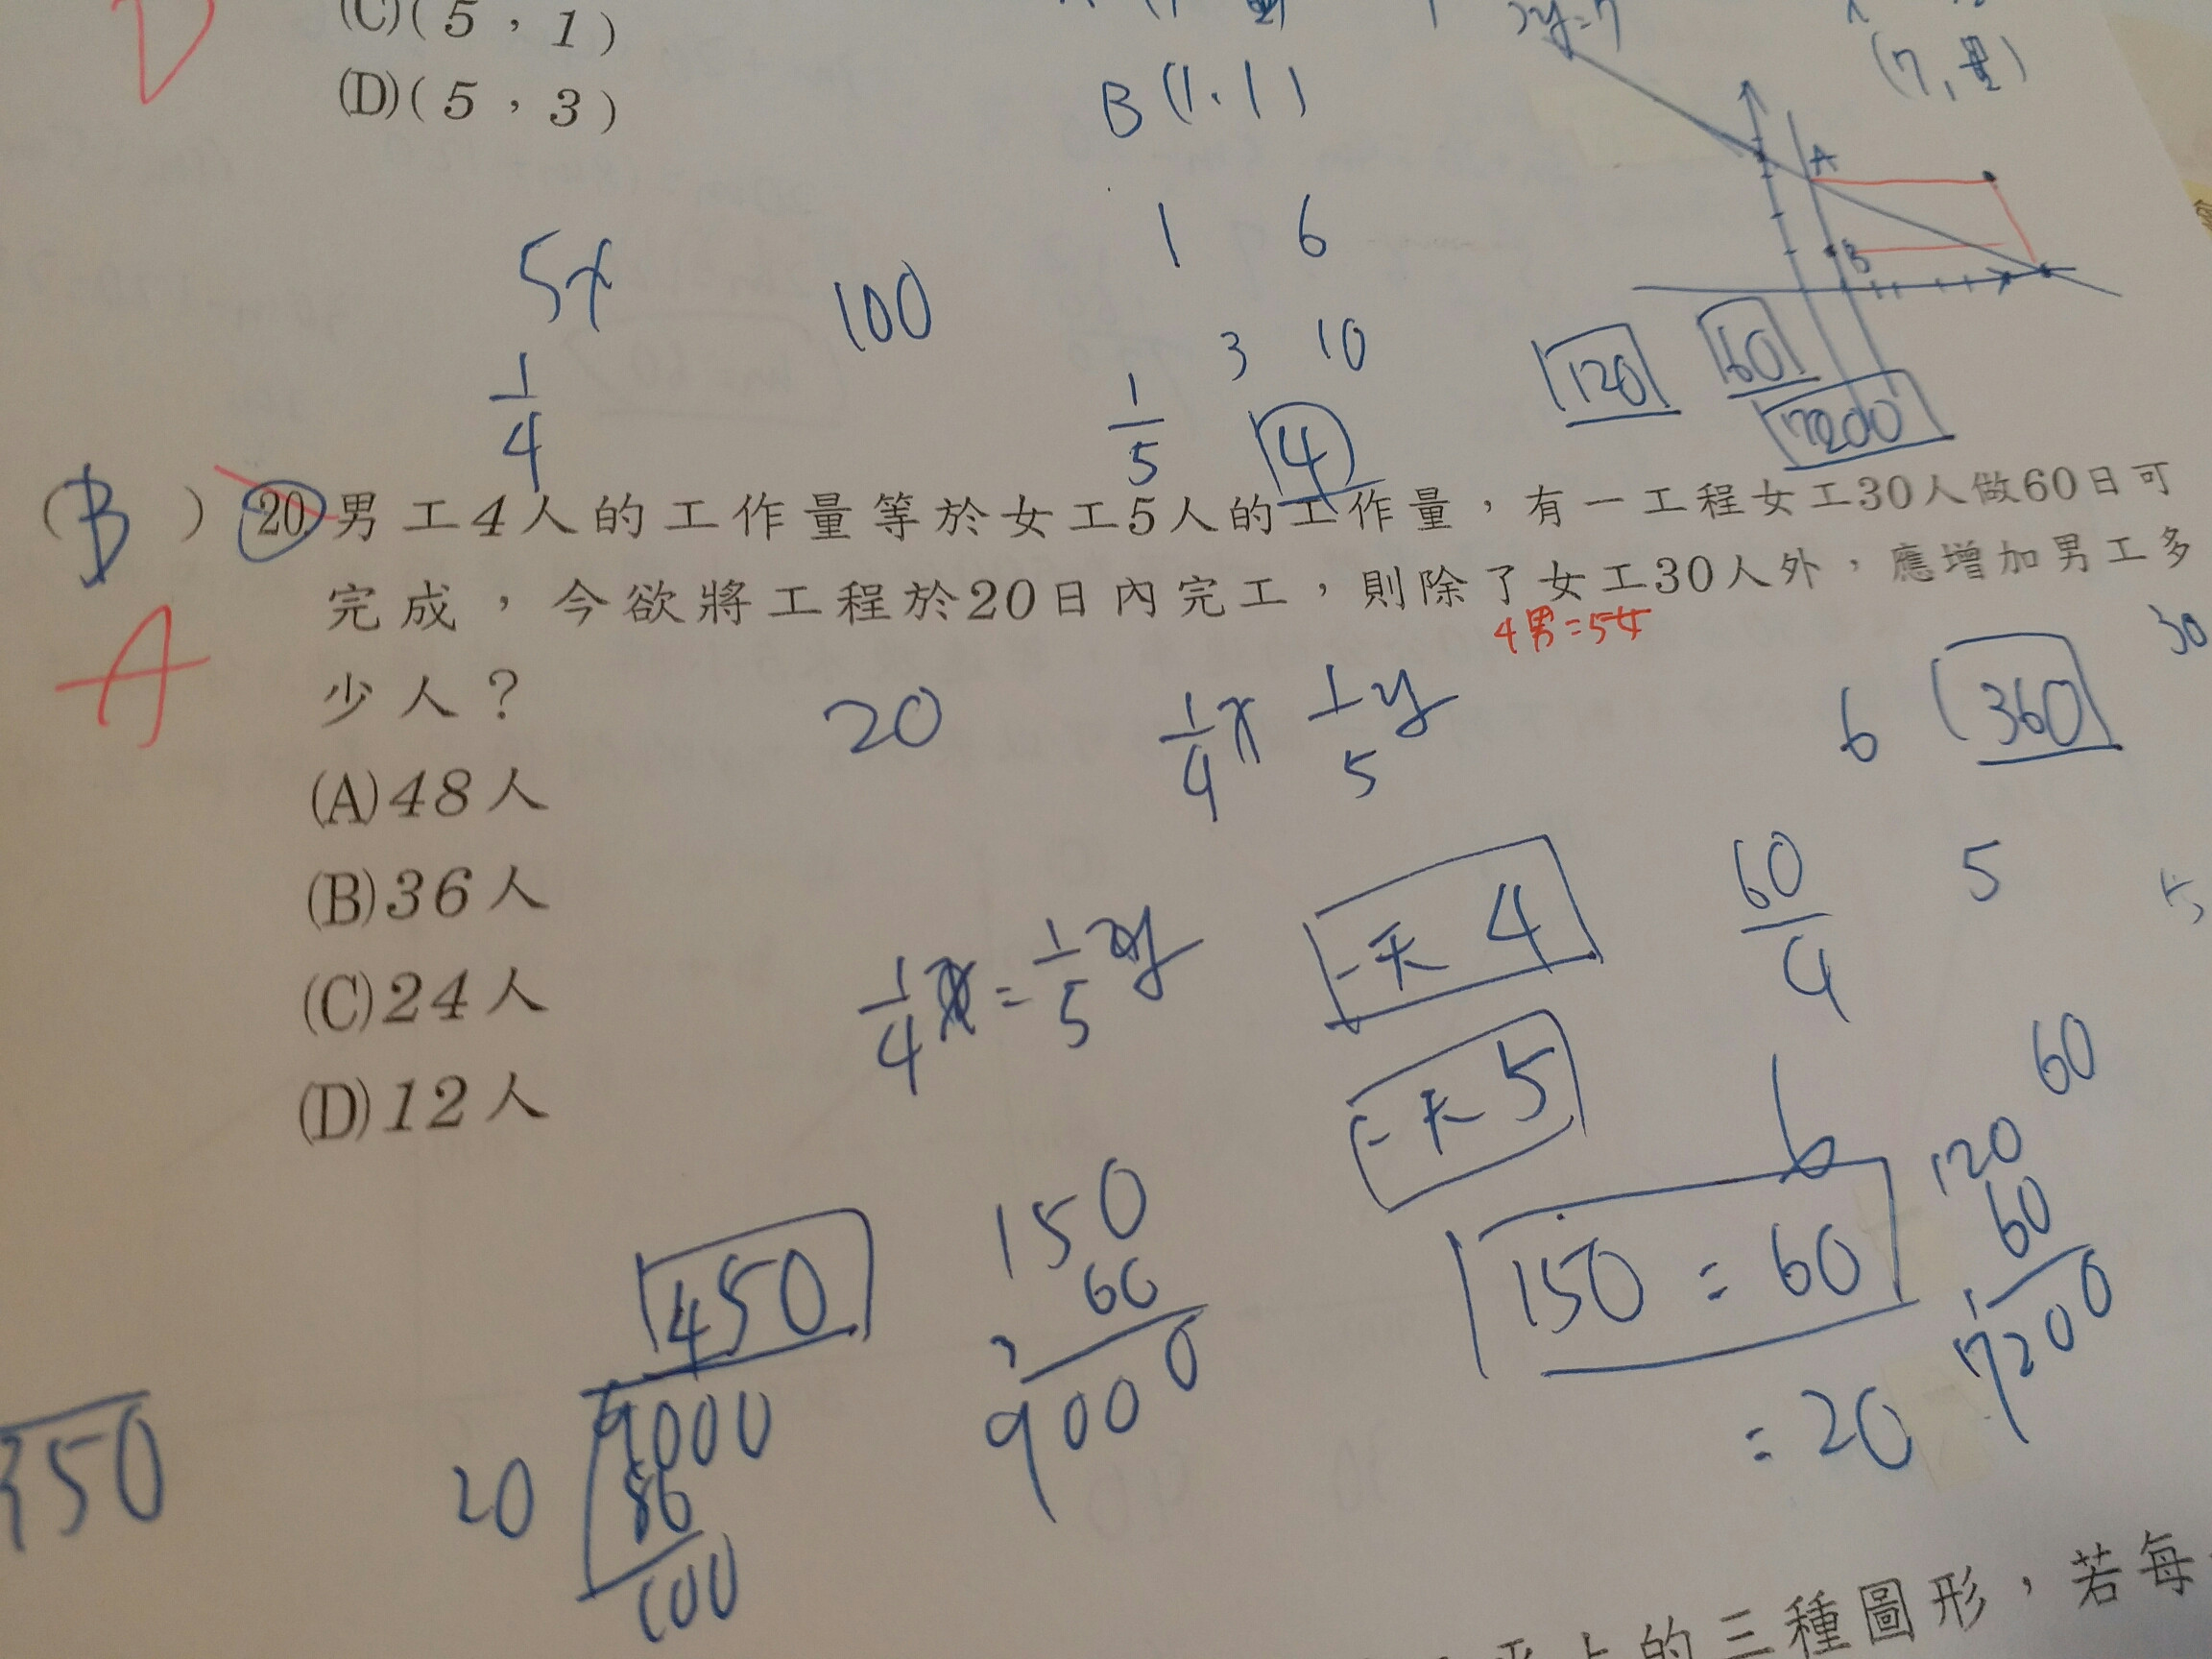 (C)(5，1)
(D)(5，3)
B(1,1)
A
B
5x
100
1 6
3 10
1/4
1/5
4
120
60
7200
(B) 20. 男工4人的工作量等於女工5人的工作量，有一工程女工30人做60日可
完成，今欲將工程於20日內完工，則除了女工30人外，應增加男工多
4男=5女
A
少人？
20
1/4x 1/5y
6
360
30
(A)48人
(B)36人
(C)24人
(D)12人
一天 4
60/4
5
5
1/4x=1/5y
一天 5
6
60
150
60
9000
150=60
=20
120
60
7200
450
20
9000
80
100
的三種圖形，若每